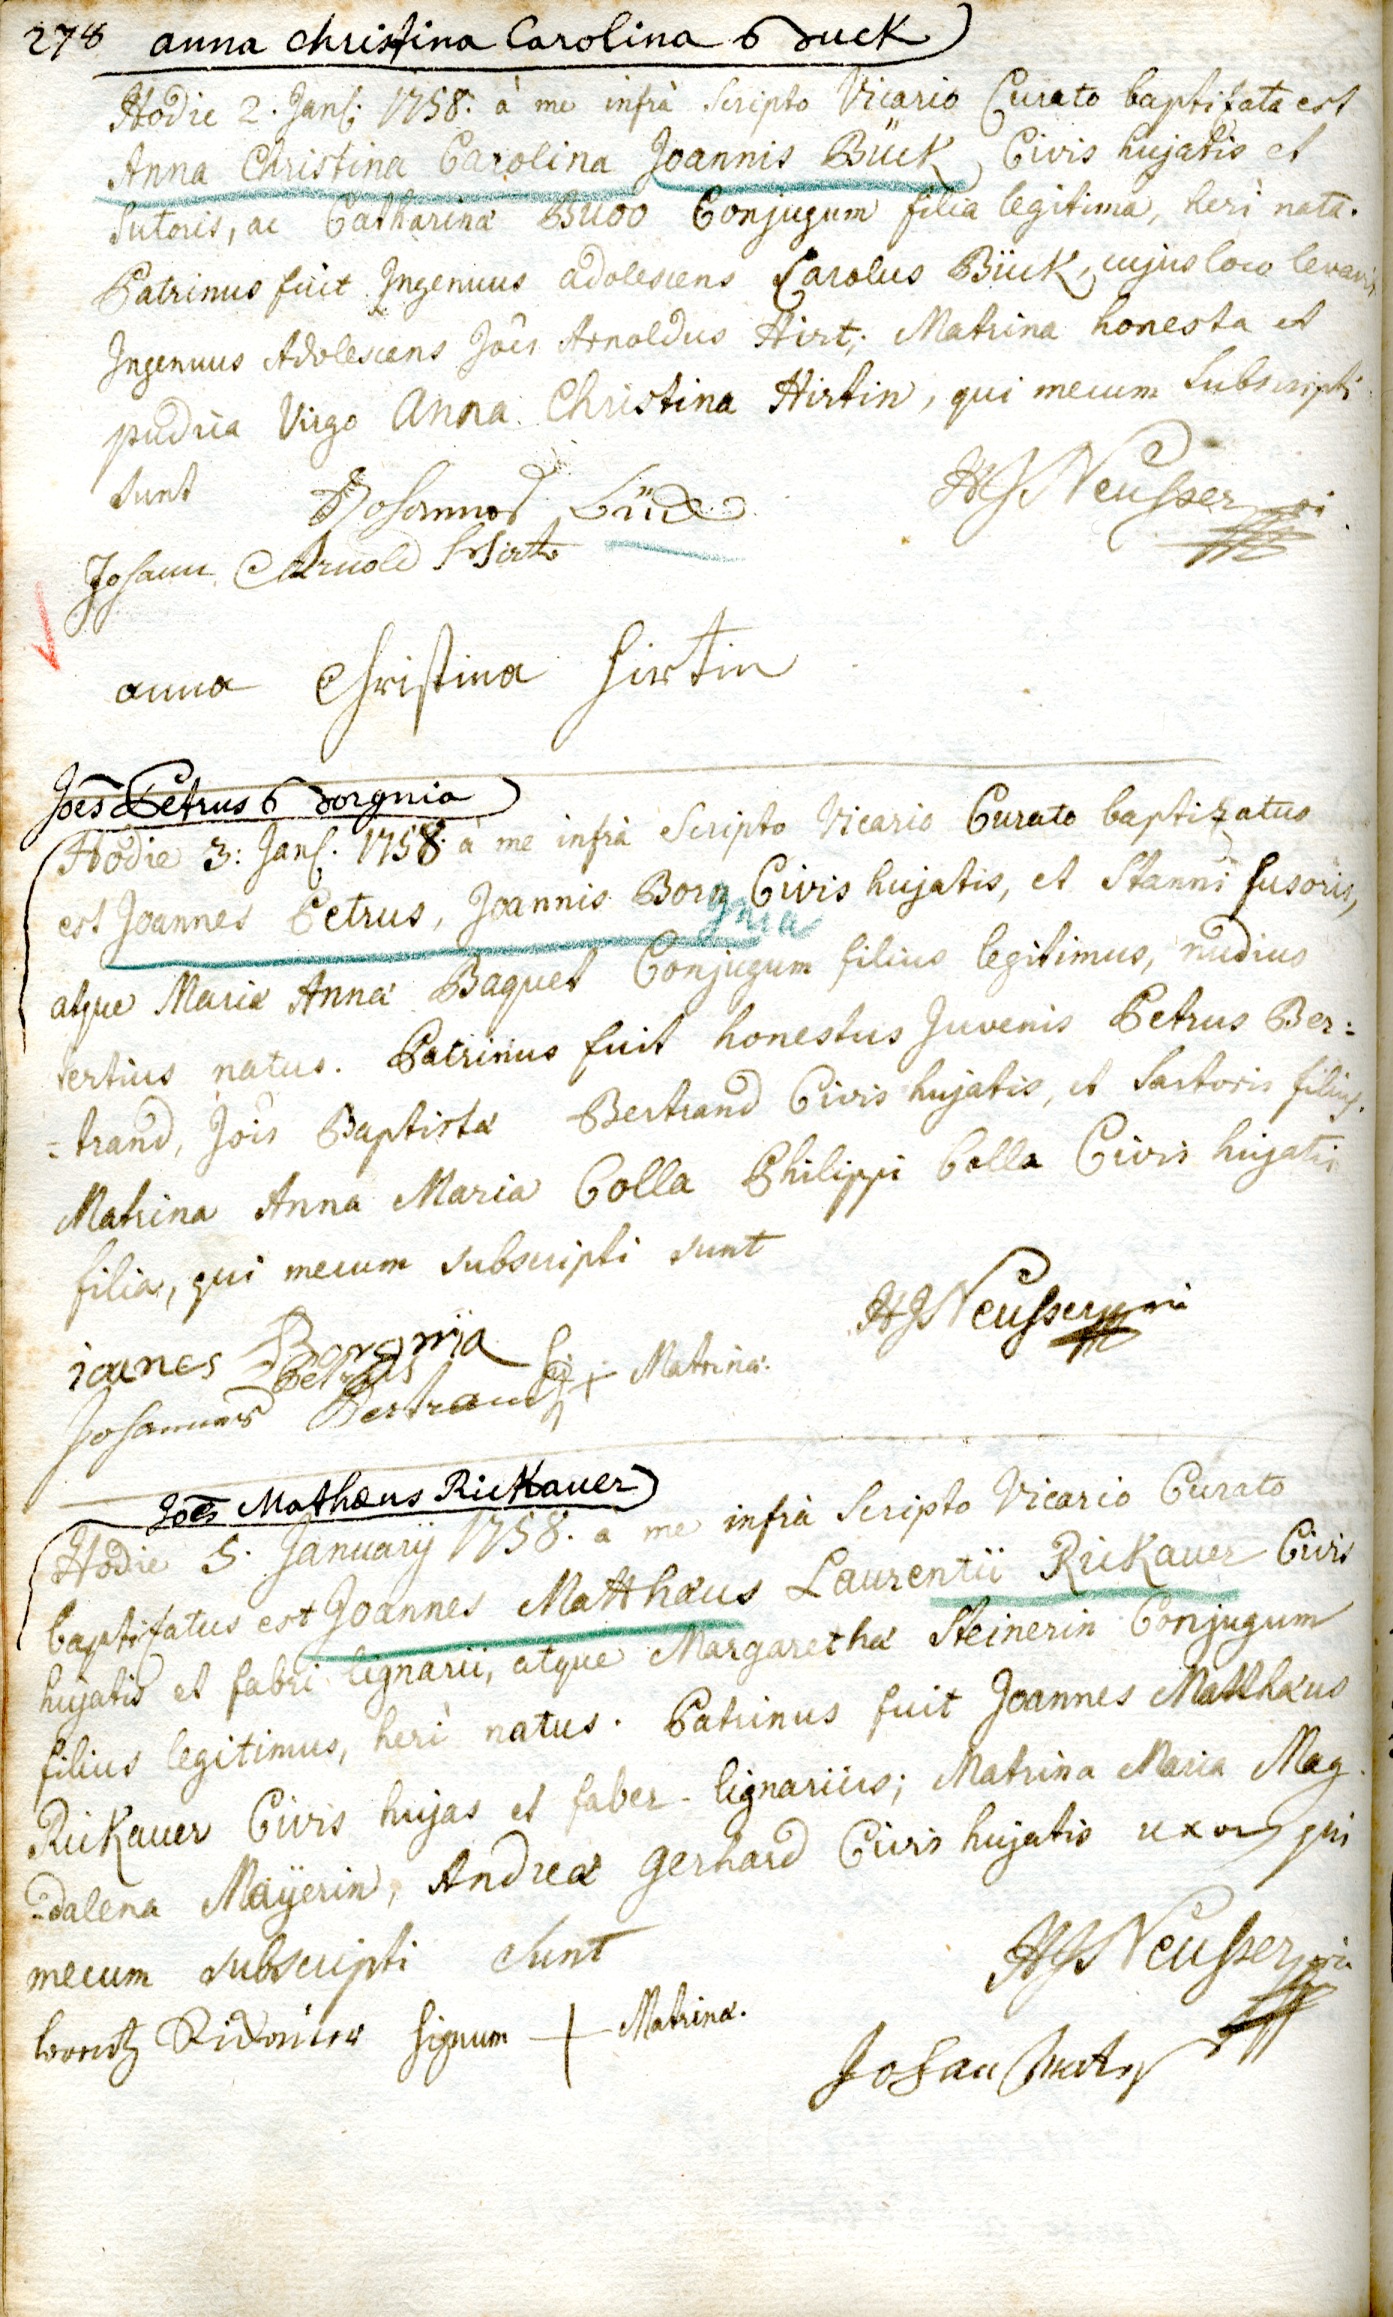 278 anna christina Carolina Buck
Hodie 2. Janr: 1758. à me infrà scripto Vicario Curato baptisata est
Anna Christina Carolina Joannis Bück Civis hujatis et
Sutoris, ac Catharinæ Buoo Conjugum filia legitima, heri nata.
Patrinus fuit Ingenuus adolescens Carolus Bück, cujus loco levavit
Ingenuus Adolescens Joês Arnoldus Hirt; Matrina honesta et
pudica Virgo Anna Christina Hirtin, qui mecum subscripti
sunt Johannes Bück HJNeusser
Johann Arnold Hirt
anna Christina hirtin
Joēs Petrus Borgnia
Hodie 3: Janr. 1758. à me infrà scripto Vicario Curato baptizatus
est Joannes Petrus, Joannis Borg gnia Civis hujatis, et Stanni fusoris,
atque Mariæ Annæ Baquet Conjugum filius legitimus, nudius
tertius natus. Patrinus fuit honestus Juvenis Petrus Ber=
=trand, Jois Baptistæ Bertrand Civis hujatis, et Sartoris filius.
Matrina Anna Maria Colla Philippi Colla Civis hujatis
filia, qui mecum subscripti sunt
HJNeusser
ioanes Borgnia
Petrus
Johannes Bertrand + Matrinæ.
Joēs Mathæus Rickauer
Hodie 5. Januarÿ 1758. a me infrà scripto Vicario Curato
baptisatus est Joannes Matthæus Laurentii Rickauer Civis
hujatis et fabri lignarii, atque Margarethæ Steinerin Conjugum
filius legitimus, heri natus. Patrinus fuit Joannes Matthæus
Rickauer Civis hujas et faber lignarius; Matrina Maria Mag=
=dalena Maÿerin, Andreæ Gerhard Civis hujatis uxor, qui
mecum subscripti sunt HJNeusser
lorentz Rickauer Signum + Matrinæ.
Johan